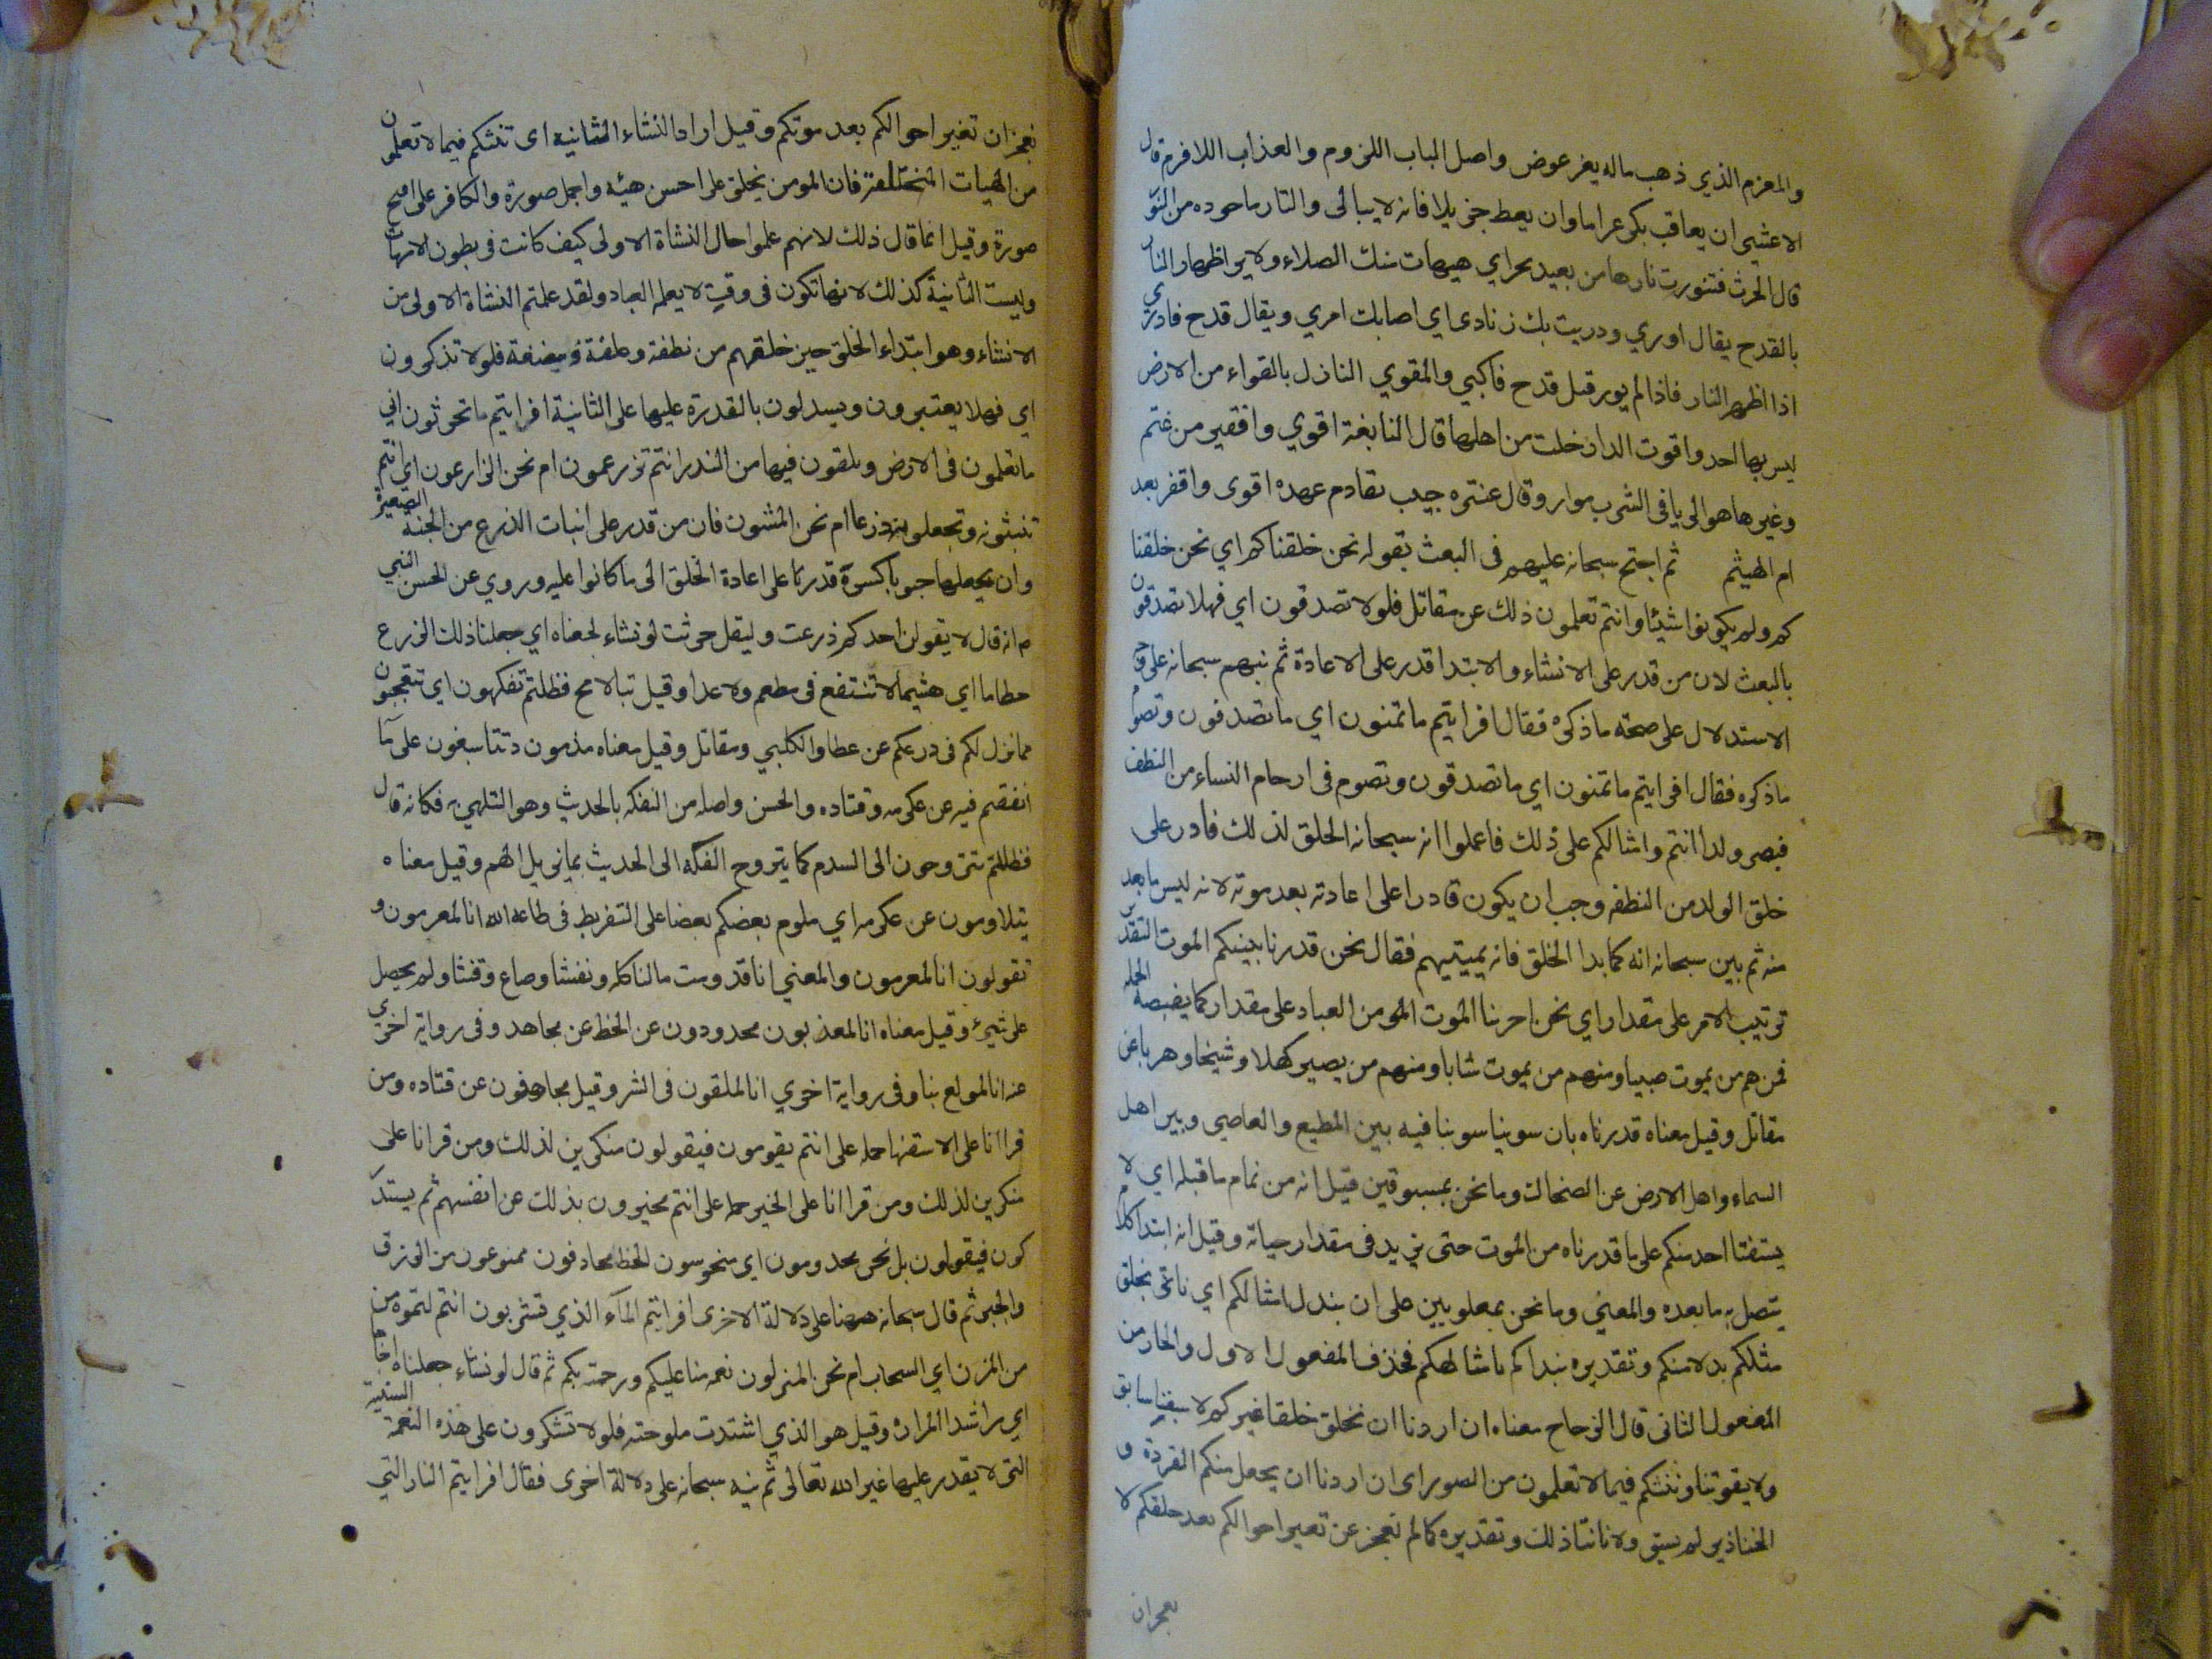 والمغرم الذي ذهب ماله بغير عوض واصل الباب اللزوم والعذاب اللازم قال
الاعشي ان يعاقب يكن غراما وان يعط جزيلا فانه لا يبالى والنار ماخوده من النو
قال الحرث فتنورت نارها من بعيد بحرازي هيهات منك الصلاء ولايرا اظهار النار
بالقدح يقال اوري ووريت بك زنادى اي اصابك امري ويقال قدح فاوري
اذا اظهر النار فاذا لم يور قيل قدح فاكبي والمقوي النازل بالقواء من الارض
ليس بها احد واقوت الدار خلت من اهلها قال النابغة اقوي واقفر من نعم
وغيرها هوالى يا فى الترب موار وقال عنتره حييت تقادم عهده اقوى واقفر بعد
ام الهيثم ثم احتج سبحانه عليهم فى البعث بقوله نحن خلقناكم اي نحن خلقنا
كم ولم يكونوا شيئا وانتم تعلمون ذلك عن مقاتل فلولا تصدقون اي فهلا تصدقون
بالبعث لان من قدر على الانشاء والابتدا قدر على الاعادة ثم نبههم سبحانه على وجه
الاستدلال على صحته ماذكره فقال افرايتم ماتمنون اي ماتصدفون وتصو
ماذكره فقال افرايتم ماتمنون اي ماتصدقون وتصوم فى ارحام النساء من النطف
فيصر ولدا انتم وامثالكم على ذلك فاعلموا انه سبحانه الخلق لذلك قادر على
خلق الولد من النطفه وجب ان يكون قادرا على اعادته بعد موته لانه ليس بابعد
منه ثم بين سبحانه انه كما بدا الخلق فانه يميتهم فقال نحن قدرنا بينكم الموت التقدير
ترتيب الامر على مقدار اي نحن اجرينا الموت المو من العباد على مقدار كما يقتضه الحكمه
فمن هم من يموت صبيا ومنهم من يموت شابا ومنهم من يصير كهلا وشيخا وهرما عن
مقاتل وقيل معناه قدرناه بان سوينا سوينا فيه بين المطيع والعاصي وبير اهل
السماء واهل الارض عن الضحاك وما نحن بمسبوقين قيل انه من تمام ماقبله اي لا
يسبقنا احد منكم على ما قدرناه من الموت حتى يزيد فى مقدار حياته وقيل انه ابتدا كلام
يتصل به مابعده والمعني وما نحن بمغلوبين على ان نبدل امثالكم اي ناتى بخلق
مثلكم بدلا منكم وتقديره نبدلكم بامثالهكم فحذف المفعول الاول والجار من
المفعول الثانى قال الزجاج معناه ان اردنا ان نخلق خلقا غيركم لا يسبقنا سابق
ولا يقوتنا وننشكم فيما لا تعلمون من الصور اى ان اردنا ان نجعل منكم القردة و
الخنازير لم نسبق ولا فاتنا ذلك وتقديره كما لم نعجز عن تغير احوالكم بعد خلقكم لا
نعجز ان
نعجز ان تغير احوالكم بعد موتكم وقيل اراد النشاء الثانيه اى ننشكم فيما لا تعلمون
من الهيات المختلفه فان المومن يخلق على احسن هيئه واجمل صورة والكافر على اقبح
صورة وقيل انما قال ذلك لانهم علموا حال النشاة الاولى كيف كانت فى بطون الامهات
وليست الثانية كذلك لانها تكون فى وقت لا يعلمه العباد ولقد علمتم النشاة الاولى من
الانشاء وهو ابتداء الخلق حين خلقهم من نطفة وعلقة ومضغة فلولا تذكرون
اي فهلا يعتبرون ويستدلون بالقدرة عليها على الثانية افرايتم ماتحرثون اي
ماتعلمون فى الارض وتلقون فيها من البذر انتم تزرعون ام نحن الزارعون اي انتم
تنبتونه وتجعلونه زرعا ام نحن المنشون فان من قدر على انبات الزرع من الحبة الصغيرة
وان يجعلها حبوبا كسوة قدرنا على اعادة الخلق الى ما كانوا عليه وروي عن الحسن النبي
م انه قال لا يقولن احدكم زرعت وليقل حرثت لو نشاء لجعلناه اي جعلنا ذلك الزرع
حطاما اي هشيما لا تنتفع فى مطعم ولاغدا وقيل تبنا لا قمح فظلتم تفكهون اي تتعجبون
مما نزل لكم فى زرعكم عن عطا والكلبي ومقاتل وقيل معناه تندمون وتتاسفون على ما
انفقتم فيه عن عكرمه وقتاده والحسن واصله من التفكه بالحديث وهو التلهي به فكانه قال
فظللتم تتروحون الى السدم كما يتروح الفكه الى الحديث بما يزيل الهم وقيل معناه
يتلاومون عن عكرمه اي ملوم بعضكم بعضا على التفريط فى طاعة الله انا لمغرمون و
تقولون انا لمغرمون والمعني انا قد وست مالنا كله ونفشنا وصاع وقفشا ولم يحصل
على شيء وقيل معناه انا لمعذبون محدودون عن الحظ عن مجاهد وفى رواية اخري
عنه انا لمولع بنا وفى رواية اخري انا لملقون فى الشر وقيل محارفون عن قتاده ومن
قرا انا على الاستفهام حمله على انتم يقومون فيقولون منكرين لذلك ومن قرا نا على
منكرين لذلك ومن قرا انا على الخبر حمله على انتم مخبرون بذلك عن انفسهم ثم يستدر
كون فيقولون بل نحن محرومون اي منحوسون الحظ محارفون ممنوعون من الرزق
والخير ثم قال سبحانه منبها على دلالة الاخرى افرايتم المآء الذي تشربون انتم انزلتموه من
من المزن اي السحاب ام نحن المنزلون نعمه منا عليكم ورحمة بكم ثم قال لو نشاء جعلناه اجاجا
اي مرا شد المراره وقيل هو الذي اشتدت ملوحته فلولا تشكرون على هذه النعمة السنية
التى لا يقدر عليها غير الله تعالى ثم نبه سبحانه على دلالة اخرى فقال افرايتم النار التي